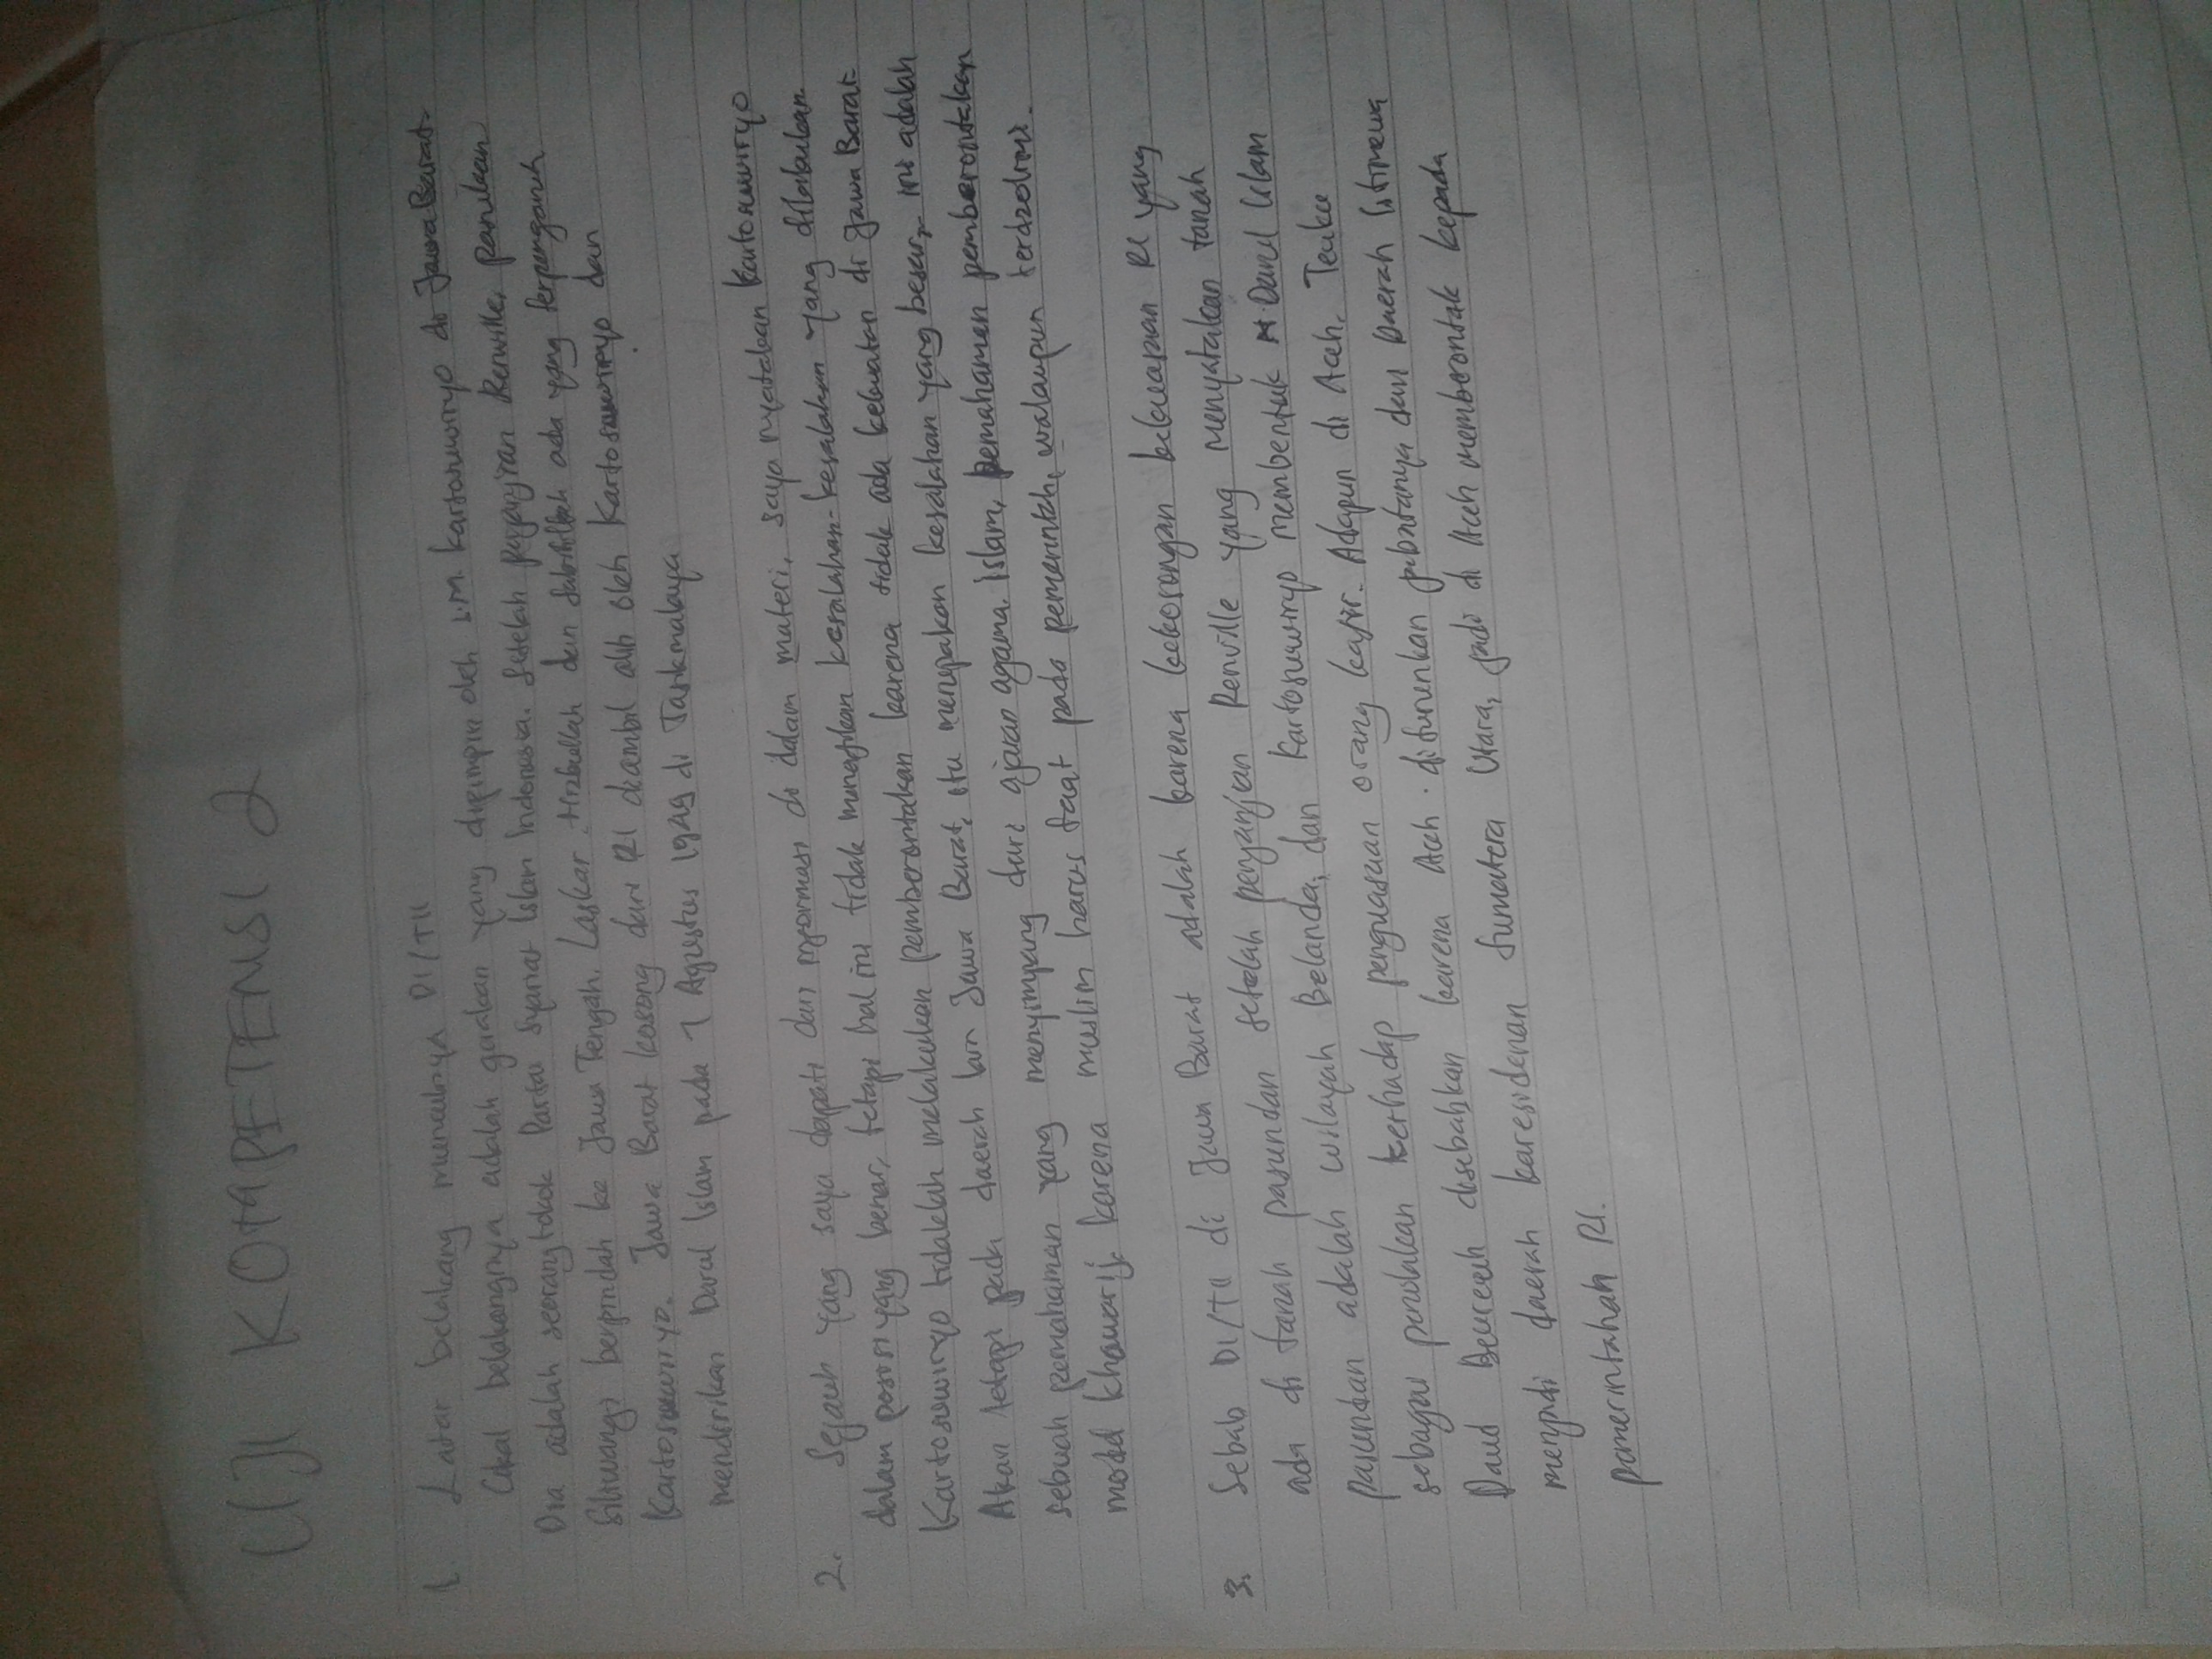 UJI KOMPETENSI 2
1. Latar belakang munculnya DI/TII
Cikal belakangnya adalah gerakan yang dipimpin oleh S.M. Kartosuwiryo di Jawa Barat.
Dia adalah seorang tokok Partai Syariat Islam Indonesia. Setelah perjanjian Renville, pasukan
Siliwangi berpindah ke Jawa Tengah. Laskar Hizbullah dan Sabilillah ada yang terpengaruh
Kartosuwiryo. Jawa Barat kosong dari RI diambil alih oleh Kartosuwiryo dan
mendirikan Darul Islam pada 7 Agustus 1949 di Tasikmalaya
2. Sejauh yang saya dapati dari informasi di dalam materi, saya nyatakan Kartosuwiryo
dalam posisi yang benar, tetapi hal ini tidak menafikan kesalahan-kesalahan yang dilakukan.
Kartosuwiryo tidaklah melakukan pemberontakan karena tidak ada kekuatan di Jawa Barat
Akan tetapi pada daerah lain Jawa Barat, itu merupakan kesalahan yang besar, ini adalah
sebuah pemahaman yang menyimpang dari ajaran agama Islam, pemahaman pemberontakan
model khawarij. karena muslim harus taat pada pemerintah, walaupun terdzolimi.
3. Sebab DI/TII di Jawa Barat adalah karena kekosongan kekuasaan RI yang
ada di tanah pasundan setelah perjanjian Renville yang menyatakan tanah
pasundan adalah wilayah Belanda, dan Kartosuwiryo membentuk Darul Islam
sebagai penolakan terhadap penguasaan orang kafir. Adapun di Aceh, Teuku
Daud Beureueh disebabkan karena Aceh diturunkan jabatanya dari Daerah Istimewa
menjadi daerah karesidenan Sumatera Utara, jadi di Aceh memberontak kepada
pemerintahan RI.